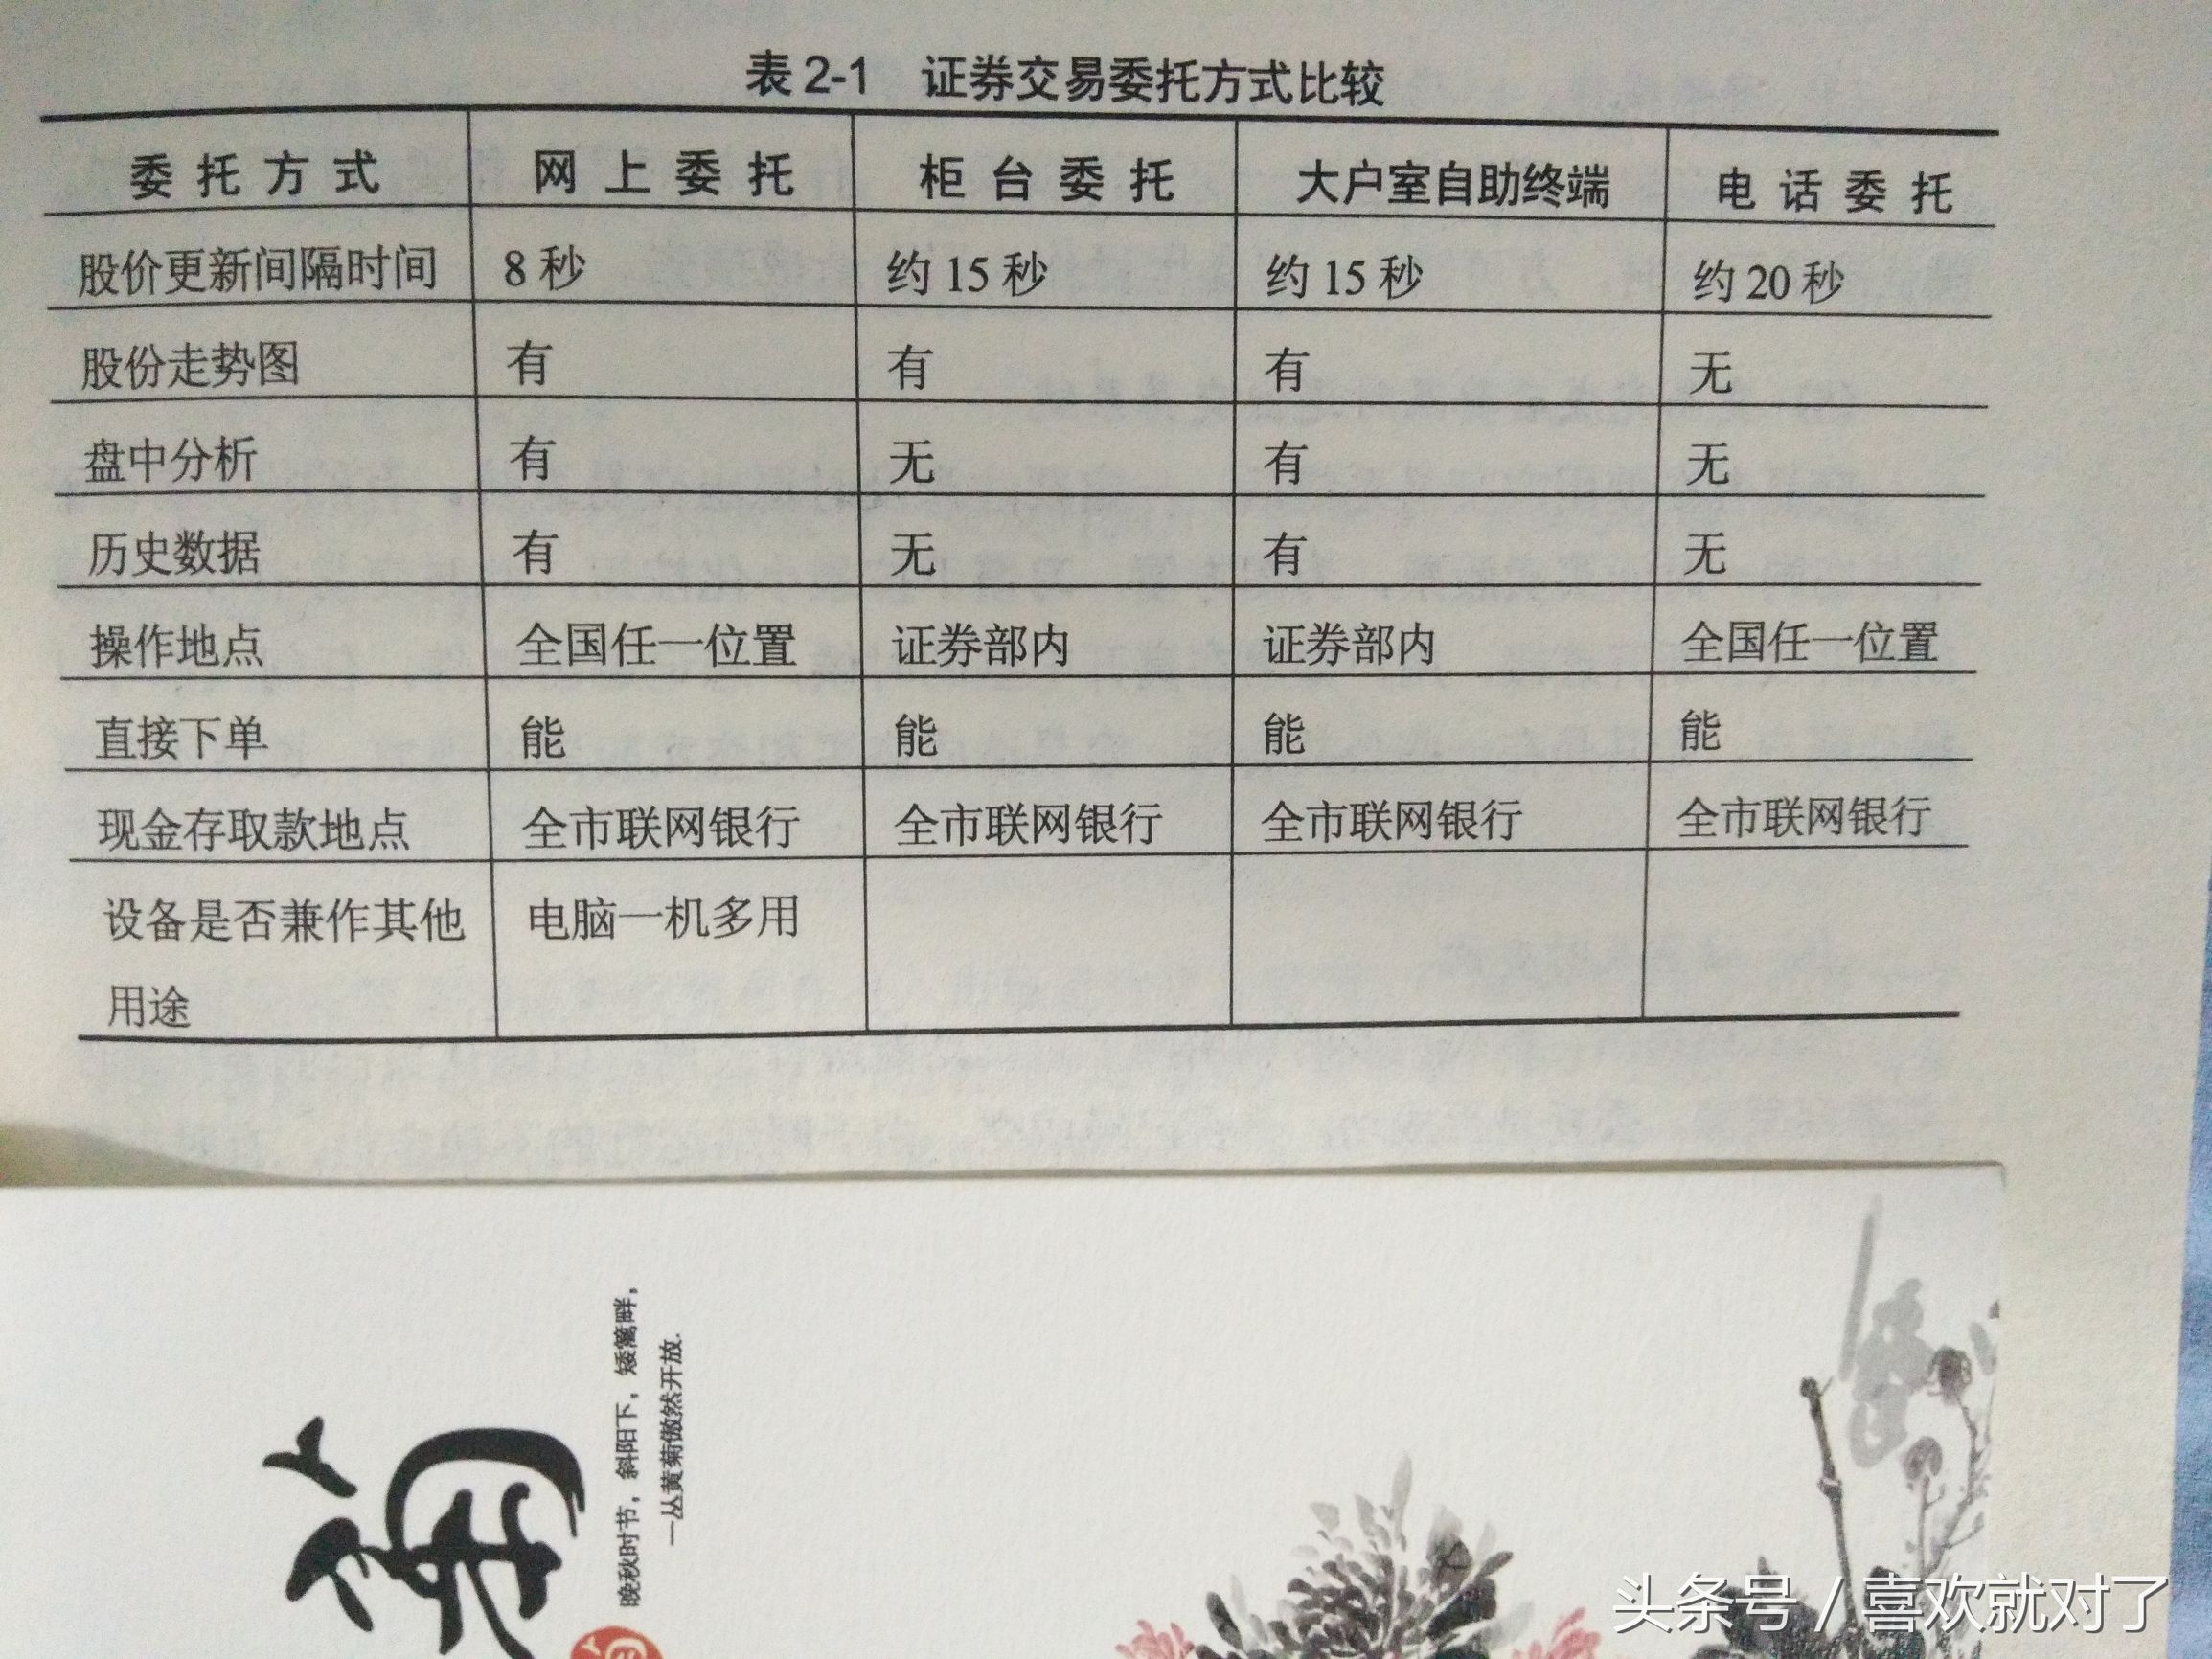 表2-1 证券交易委托方式比较
委托方式 网上委托 柜台委托 大户室自助终端 电话委托
股价更新间隔时间 8秒 约15秒 约15秒 约20秒
股份走势图 有 有 有 无
盘中分析 有 无 有 无
历史数据 有 无 有 无
操作地点 全国任一位置 证券部内 证券部内 全国任一位置
直接下单 能 能 能 能
现金存取款地点 全市联网银行 全市联网银行 全市联网银行 全市联网银行
设备是否兼作其他 电脑一机多用
用途
菊
晚秋时节，斜阳下，矮篱畔，
一丛黄菊傲然开放.
头条号 / 喜欢就对了